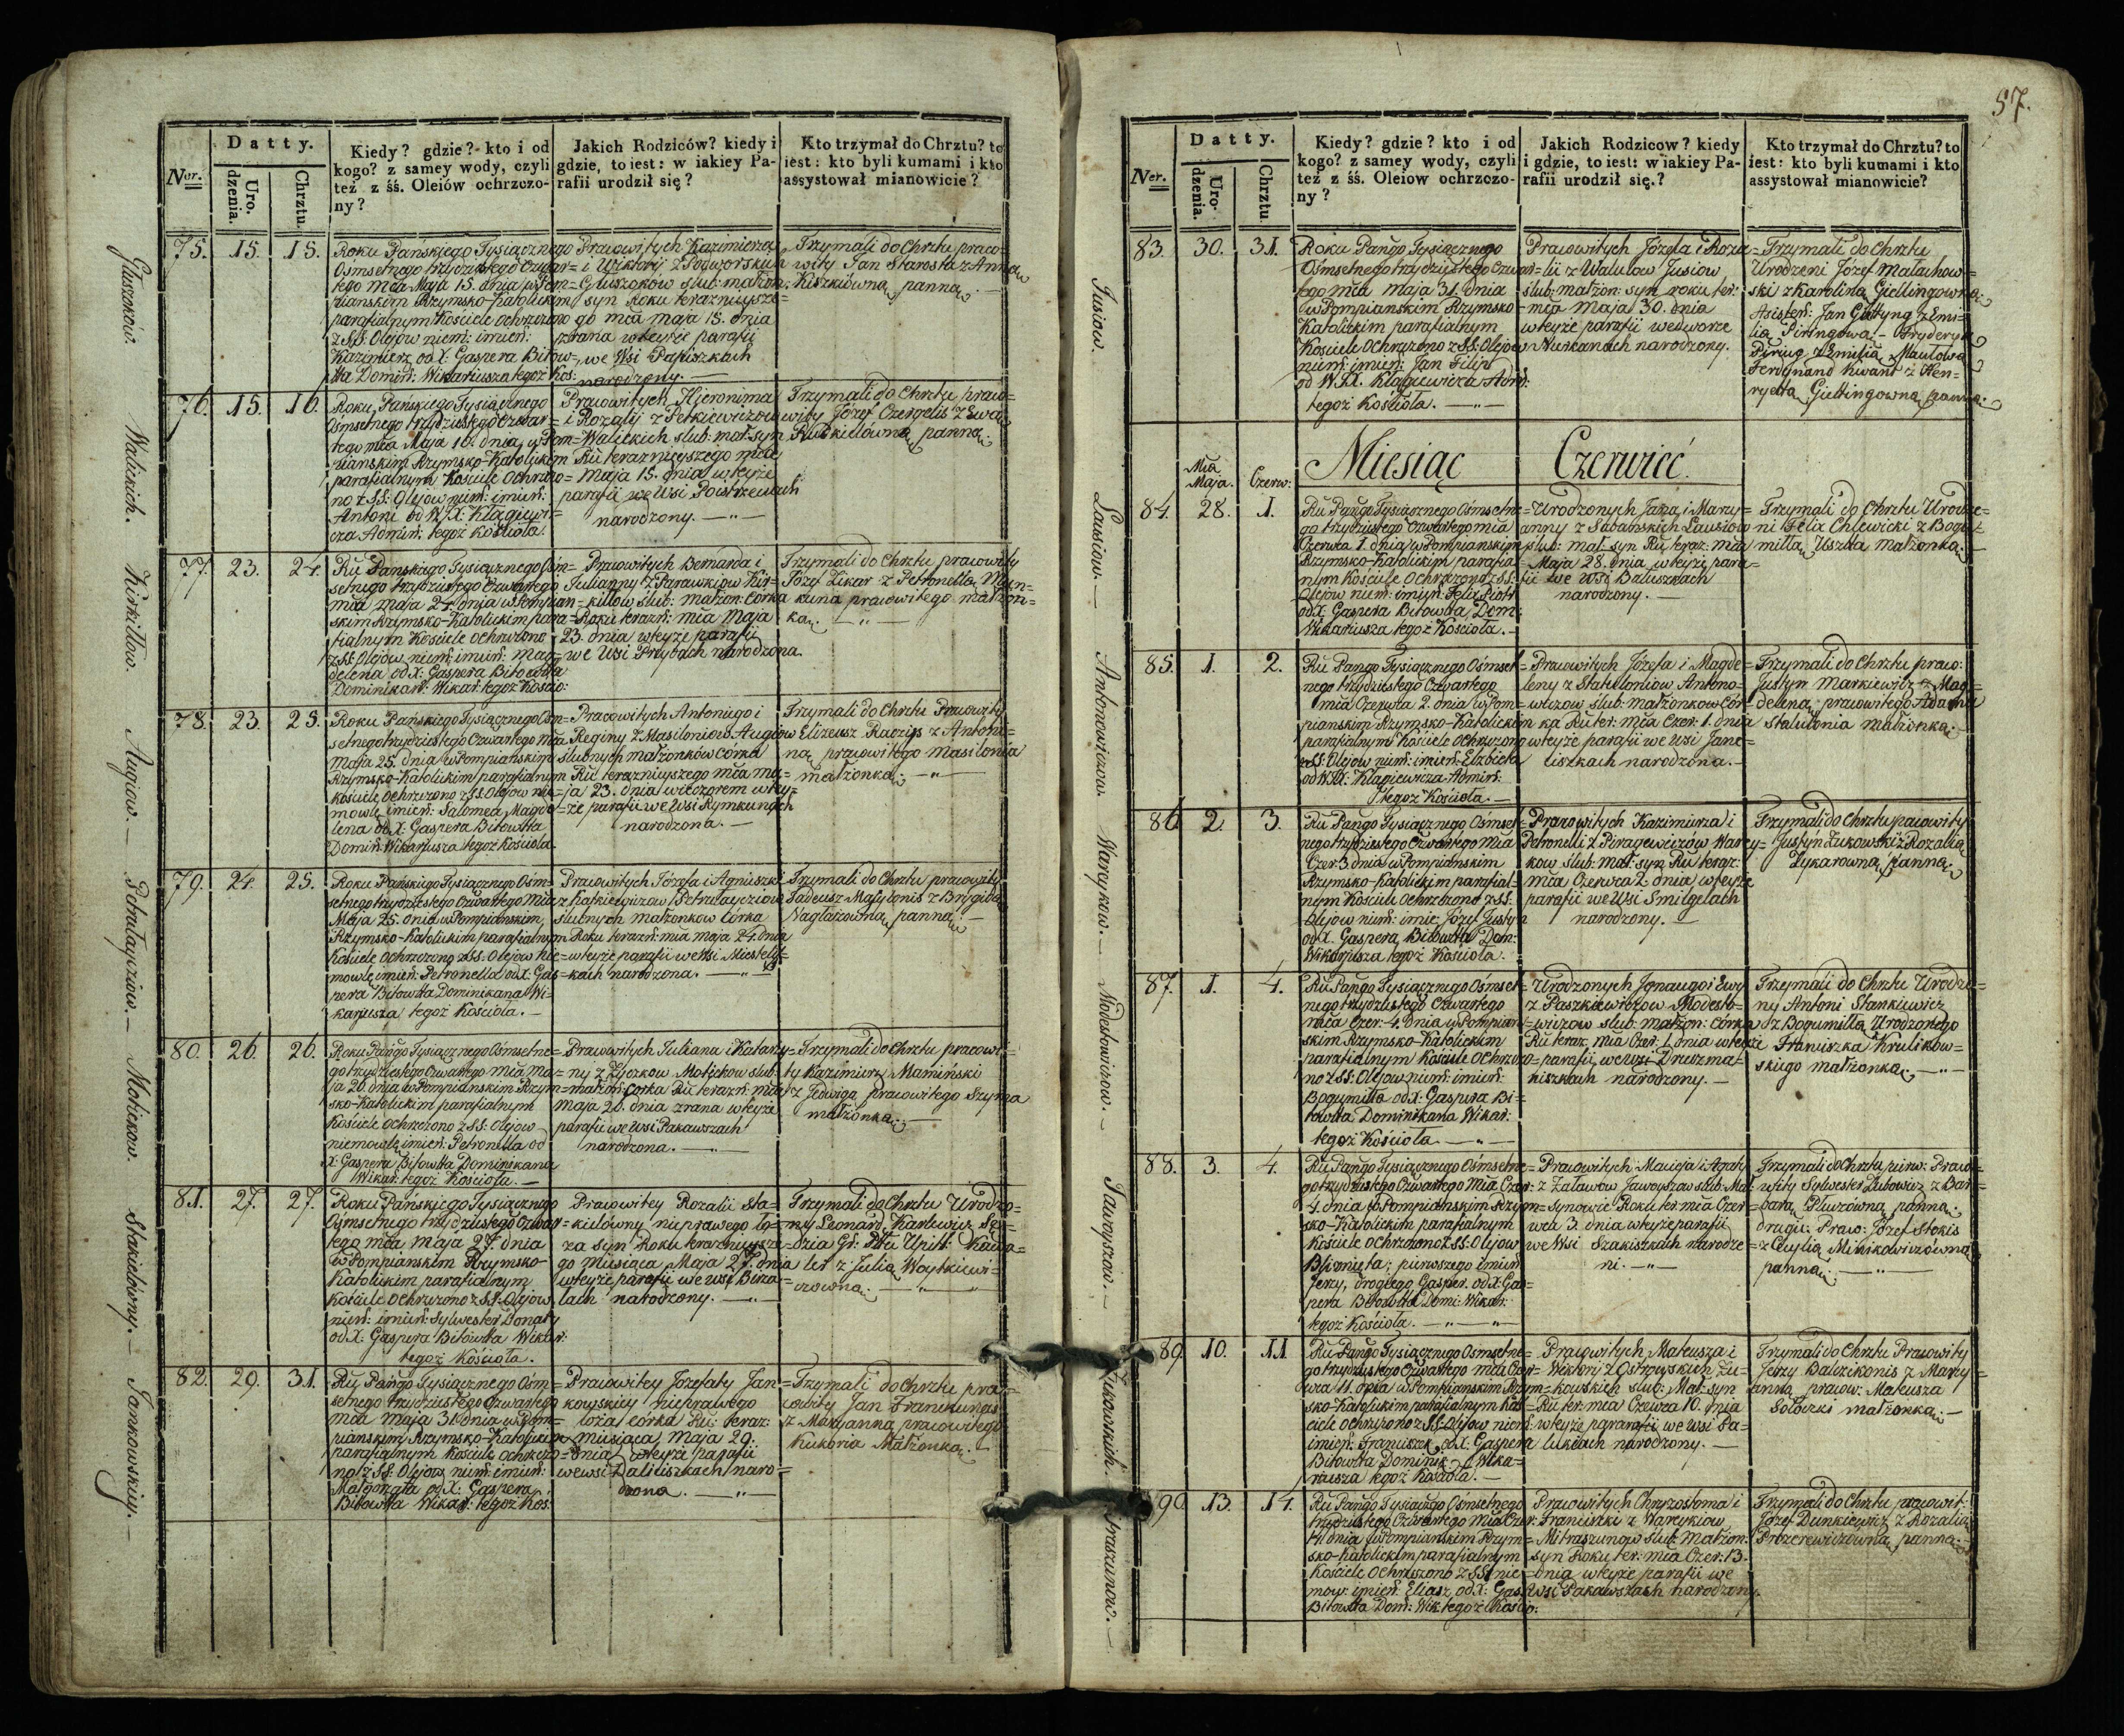 Ner.
Datty.
Uro-
dzenia.
Chrztu.
Kiedy? gdzie? kto i od
kogo? z samey wody, czyli
też z śś. Oleiów ochrzczo-
ny?
Jakich Rodziców? kiedy i
gdzie, to iest: w iakiey Pa-
rafii urodził się?
Kto trzymał do Chrztu? to
iest: kto byli kumami i kto
assystował mianowicie?
Głuszoków.
75. 15. 15.
Roku Pańskiego Tysiącznego
Osmsetnego trzydziestego Czwar=
tego mca Maja 15. dnia w Pom=
pianskim Rzymsko-Katolickim
parafialnym Kościele ochrzczono
z SS. Olejow niem: imien:
Kazimierz od X. Gaspera Bitow=
tta Domin: Wikariusza tegoż Koś:
Pracowitych Kazimierza
i Wiktorij z Podworskich
Głuszokow slub: małżon:
syn Roku terazniejsze=
go mca maja 15. dnia
zrana w teyże parafii
we Wsi Pasiszkach
narodzony. —
Trzymali do Chrztu praco=
wity Jan Starosta z Anną
Kiszkiowną panną. —
Walickich.
76. 15. 16.
Roku Pańskiego Tysiącznego
Osmsetnego trzydziestego Czwar=
tego mca Maja 16. dnia w Pom=
pianskim Rzymsko-Katolickim
parafialnym Kościele Ochrzczo=
no z SS: Olejow niem: imien:
Antoni od W. X: Kłagiewi=
cza Admin: tegoż Kościoła.
Pracowitych Hieronima
i Rozalij z Petkiewiczow
Walickich slub: mał: syn
Ru terazniejszego mca
Maja 15. dnia w teyże
parafii we Wsi
narodzony. — " —
Trzymali do Chrztu praco=
wity Józef Czergelis z Ewą
Rubkielówną panną.
Kirkiłłow.
77. 23. 24.
Ru Pańskiego Tysiącznego Osm=
setnego trzydziestego Czwartego
mca maja 24 dnia w Pompian=
skim Rzymsko-Katolickim para=
fialnym Kościele ochrzczono
z SS: Olejow niem: imien: Mag=
delena od X: Gaspera Bitowtta
Dominikan: Wikar: tegoż Kościo:
Pracowitych Bernarda i
Julianny z Parawkiow Kir=
kiłłow slub: małżon: Corka
Roku terazn: mca Maja
23. dnia w teyże parafii
we Wsi Przybach narodzona.
Trzymali do Chrztu pracowity
Józef Likar z Petronellą
pracowitego małżon=
ką. — " —
Augiow. —
78. 23. 25.
Roku Pańskiego Tysiącznego Osm=
setnego trzydziestego Czwartego mca
Maja 25. dnia w Pompianskim
Rzymsko-Katolickim parafialnym
Kościele Ochrzczono z SS. Olejow nie=
mowle imien: Salomea, Magde=
lena od X: Gaspera Bitowtta
Domin: Wikarjusza tegoż Kościoła.
Pracowitych Antoniego i
Reginy z Masiloniow Augiow
slubnych małżonków córka
Ru terazniejszego mca ma=
ja 23. dnia wieczorem w tey=
że parafii we Wsi Rymkunach
narodzona. —
Trzymali do Chrztu Pracowity
Elizeusz Raczis z Antoni=
ną pracowitego Masilonia
małżonką. — " —
Petrułayciow. —
79. 24. 25.
Roku Pańskiego Tysiącznego Osm=
setnego trzydziestego Czwartego mca
Maja 25. dnia w Pompianskim
Rzymsko-Katolickim parafialnym
Kościele Ochrzczono z SS. Olejow nie=
mowle imien: Petronella od X. Gas=
pera Bitowtta Dominikana Wi=
karjusza tegoż Kościoła. —
Pracowitych Józefa i Agnieszki
slubnych małżonkow Córka
Roku terazn: mca maja 24. dnia
w teyże parafii we Wsi Mieszely=
kach narodzona. — " —
Trzymali do Chrztu pracowity
Tadeusz Masylonis z Brygidą
Nagłazowną panną. —
Motiekow.
80. 26. 26.
Roku Pango Tysiącznego Osmsetne=
go trzydziestego Czwartego mca ma=
ja 26. dnia w Pompianskim Rzym=
sko-Katolickim parafialnym
Kościele ochrzczono z SS. Olejow
niemowle imien: Petronella od
X: Gaspera Bitowtta Dominikana
Wikar: tegoż Kościoła. —
Pracowitych Juliana i Katarzy=
ny z Zyczkow Motiekow slub:
małżon: Corka Ru terazn: mca
Maja 26. dnia zrana w teyże
parafii we Wsi Pakawszach
narodzona. — " —
Trzymali do Chrztu pracowi=
ty Kazimierz Mamiński
z Jedwigą pracowitego Szyma
małżonką. —
Stakielówny. —
81. 27. 27.
Roku Pańskiego Tysiącznego
Osmsetnego trzydziestego Czwar=
tego mca maja 27. dnia
w Pompianskim Rzymsko-
Katolickim parafialnym
Kościele Ochrzczono z SS. Olejow
niem: imien: Sylwester Donat
od X. Gaspera Bitowtta Wikar:
tegoż Kościoła.
Pracowitey Rozalii Sta=
kielówny nieprawego ło=
za syn Roku terazniejsze=
go Miesiąca Maja 27. dnia
w teyże parafii we Wsi
narodzony. — " —
Trzymali do Chrztu Urodzo=
ny Leonard Karlewicz Sę=
dzia Gr. Pttu Upit: Kawa=
ler z Julią Woytkiewi=
czowną. — " —
Jankowskiey. —
82. 29. 31.
Ru Pango Tysiącznego Osm=
setnego trzydziestego Czwartego
mca maja 31 dnia w Pom=
pianskim Rzymsko-Katolickim
parafialnym Kościele ochrzczo=
no z SS: Olejow niem: imien:
Małgorzata od X: Gaspera
Bitowtta Wikar: tegoż Koś:
Pracowitey Jozefaty Jan=
kowskiey nieprawego
łoża córka Ru: teraz:
miesiąca Maja 29.
dnia w teyże parafii
we wsi Daliliszkach naro=
dzona. — " —
Trzymali do Chrztu pra=
cowity Jan Franckunas
z Maryanną pracowitego
Kukoria Małżonką. —
57.
Ner.
Datty.
Uro-
dzenia.
Chrztu.
Kiedy? gdzie? kto i od
kogo? z samey wody, czyli
też z śś. Oleiow ochrzczo-
ny?
Jakich Rodzicow? kiedy
i gdzie, to iest: w iakiey Pa-
rafii urodził się.?
Kto trzymał do Chrztu? to
iest: kto byli kumami i kto
assystował mianowicie?
Jusiow.
83. 30. 31.
Roku Pango Tysiącznego
Ośmsetnego trzydziestego Czwar=
tego mca maja 31. dnia
w Pompianskim Rzymsko=
Katolickim parafialnym
Kościele Ochrzczono z SS. Olejow
niem: imien: Jan Filip
od W. X. Kłagiewicza Adm:
tegoż Kościoła. — " —
Pracowitych Józefa i Roza=
lii z Walulow Jusiow
slub: małżon: syn roku ter:
mca Maja 30. dnia
w teyże parafii we dworze
Nurkanach narodzony.
Trzymali do Chrztu
Urodzeni Józef Małachow=
ski z Karoliną Giettingowną
Asisten: Jan Giettyng z Emi=
lią Piringową — Fryderyk
Piring z Emilią Mautową
Ferdynand Kwant z Hen=
ryettą Giettingowną panną.
Miesiąc Czerwiec.
Mca
Maja. Czerw:
Lausiow. —
84. 28. 1.
Ru Pango Tysiącznego Osmsetne=
go trzydziestego Czwartego mca
Czerwca 1. dnia w Pompianskim
Rzymsko-Katolickim parafial=
nym Kościele Ochrzczono z SS:
Olejow niem: imien: Felix Piotr
od X: Gaspera Bitowtta, Dom:
Wikariusza tegoż Kościoła. —
Urodzonych Jana i Mary=
anny z Sababskich Lausiow
slub: mał: syn Ru teraz: mca
Maja 28. dnia w teyże para=
fii we Wsi Baluszkach
narodzony. —
Trzymali do Chrztu Urodze=
ni Felix Chlewicki z Bogu=
miłłą Uszilla małżonką. —
Antonowiczow.
85. 1. 2.
Ru Pango Tysiącznego Osmset=
nego trzydziestego Czwartego
mca Czerwca 2. dnia w Pom=
pianskim Rzymsko-Katolickim
parafialnym Kościele Ochrzczono
z SS: Olejow niem: imien: Elzbieta
od W. X: Kłagiewicza Admin:
tegoż Kościoła. —
Pracowitych Józefa i Magde=
leny z Statuloniow Antono=
wiczow slub: małżonkow Cór=
ka Ru ter: mca Czer: 1. dnia
w teyże parafii we Wsi Jane=
liszkach narodzona. —
Trzymali do Chrztu praco:
Justyn Markiewicz z Mag=
deleną pracowitego Adama
Statulonia małżonką. —
Warcykow. —
86. 2. 3.
Ru Pango Tysiącznego Osmset=
nego trzydziestego Czwartego Mca
Czer. 3 dnia w Pompianskim
Rzymsko-Katolickim parafial=
nym Kościele Ochrzczono z SS.
Olejow niem: imie: Józef Justyn
od X. Gaspera Bitowtta Dom:
Wikarjusza tegoż Kościoła.
Pracowitych Kazimierza i
Petronelli z Piragiewiczów Warcy=
kow slub: mał: syn Ru teraz:
mca Czerwca 2. dnia w teyże
parafii we Wsi Smilgelach
narodzony. —
Trzymali do Chrztu pracowity
Justyn Żukowski z Rozalią
Zykarowną panną.
Modestowiczow. —
87. 1. 4.
Ru Pango Tysiącznego Osmset=
nego trzydziestego Czwartego
mca Czer: 4. dnia w Pompian=
skim Rzymsko-Katolickim
parafialnym Kościele Ochrzczo=
no z SS: Olejow niem: imien:
Bogumiłła od X: Gaspera Bi=
towtta Dominikana Wikar:
tegoż Kościoła. — " —
Urodzonych Ignacego i Ewy
z Paszkiewiczow Modesto=
wiczow slub: małżon: córka
Ru teraz: mca Czer: 1. dnia w teyże
parafii we Wsi Druszma=
niszkach narodzony. —
Trzymali do Chrztu Urodzo=
ny Antoni Stankiewicz
z Bogumiłłą Urodzonego
Franciszka Krulikow=
skiego małżonką. — " —
Jawoyszow. —
88. 3. 4.
Ru Pango Tysiącznego Osmsetne=
go trzydziestego Czwartego Mca Czer:
4. dnia w Pompianskim Rzym=
sko-Katolickim parafialnym
Kościele Ochrzczono z SS. Olejow
Bliznięta; pierwszego imien:
Jerzy, drogiego Gasper. od X: Gas=
pera Bitowtta Domi: Wikar:
tegoż Kościoła. — " — " —
Pracowitych Macieja i Agaty
z Załałow Jawoyszow slub: Mał:
synowie Roku ter: mca Czer=
wca 3. dnia w teyże parafii
we Wsi Szakiszkach narodze=
ni. — " —
Trzymali do Chrztu pierw: Praco=
wity Sylwester Lubowicz z Bar=
barą panną:
drugie: Praw: Józef Stokis
z Cecylią Minkowiczówną
panną. — " —
Żukowskich.
89. 10. 11.
Ru Pango Tysiącznego Osmsetne=
go trzydziestego Czwartego mca Czer=
wca 11. dnia w Pompianskim Rzym=
sko-Katolickim parafialnym Koś=
ciele Ochrzczono z SS. Olejow niem:
imien: Franciszek od X: Gaspera
Bitowtta Dominik: Wika=
riusza tegoż Kościoła. —
Pracowitych Mateusza i
Wiktorij z Ostrowskich Żu=
kowskich slub: Mał: syn
Ru ter: mca Czerwca 10. dnia
w teyże pararafii we Wsi Pa=
lukiach narodzony. —
Trzymali do Chrztu Pracowity
Jerzy Balczikonis z Mary=
anną pracow: Mateusza
małżonką. —
90. 13. 14.
Ru Pango Tysiącznego Osmsetnego
trzydziestego Czwartego mca Czer:
14. dnia w Pompianskim Rzym=
sko-Katolickim parafialnym
Kościele Ochrzczono z SS. nie=
mow: imien: Eliasz od X: Gas:
Bitowtta Dom: Wik: tegoż Kościo:
Pracowitych Chryzostoma i
Franciszki z Warcykiow
Mitraszunow slub: Małżon:
syn Roku ter: mca Czer: 13.
dnia w teyże parafii we
Wsi Pakawszach narodzony.
Trzymali do Chrztu pracowit:
Józef Dunkiewicz z Rozalią
Prozerewiczówną panną.